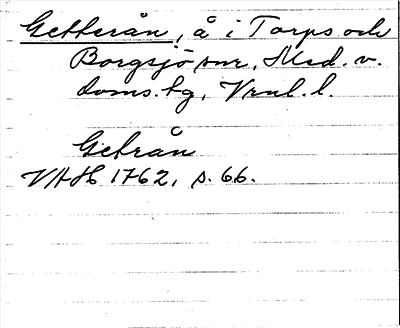 Getterån, å i Torps och
Borgsjö snr, Med. v.
doms.hg, Vrnl. l.
Getrån
VAH 1762, s. 66.